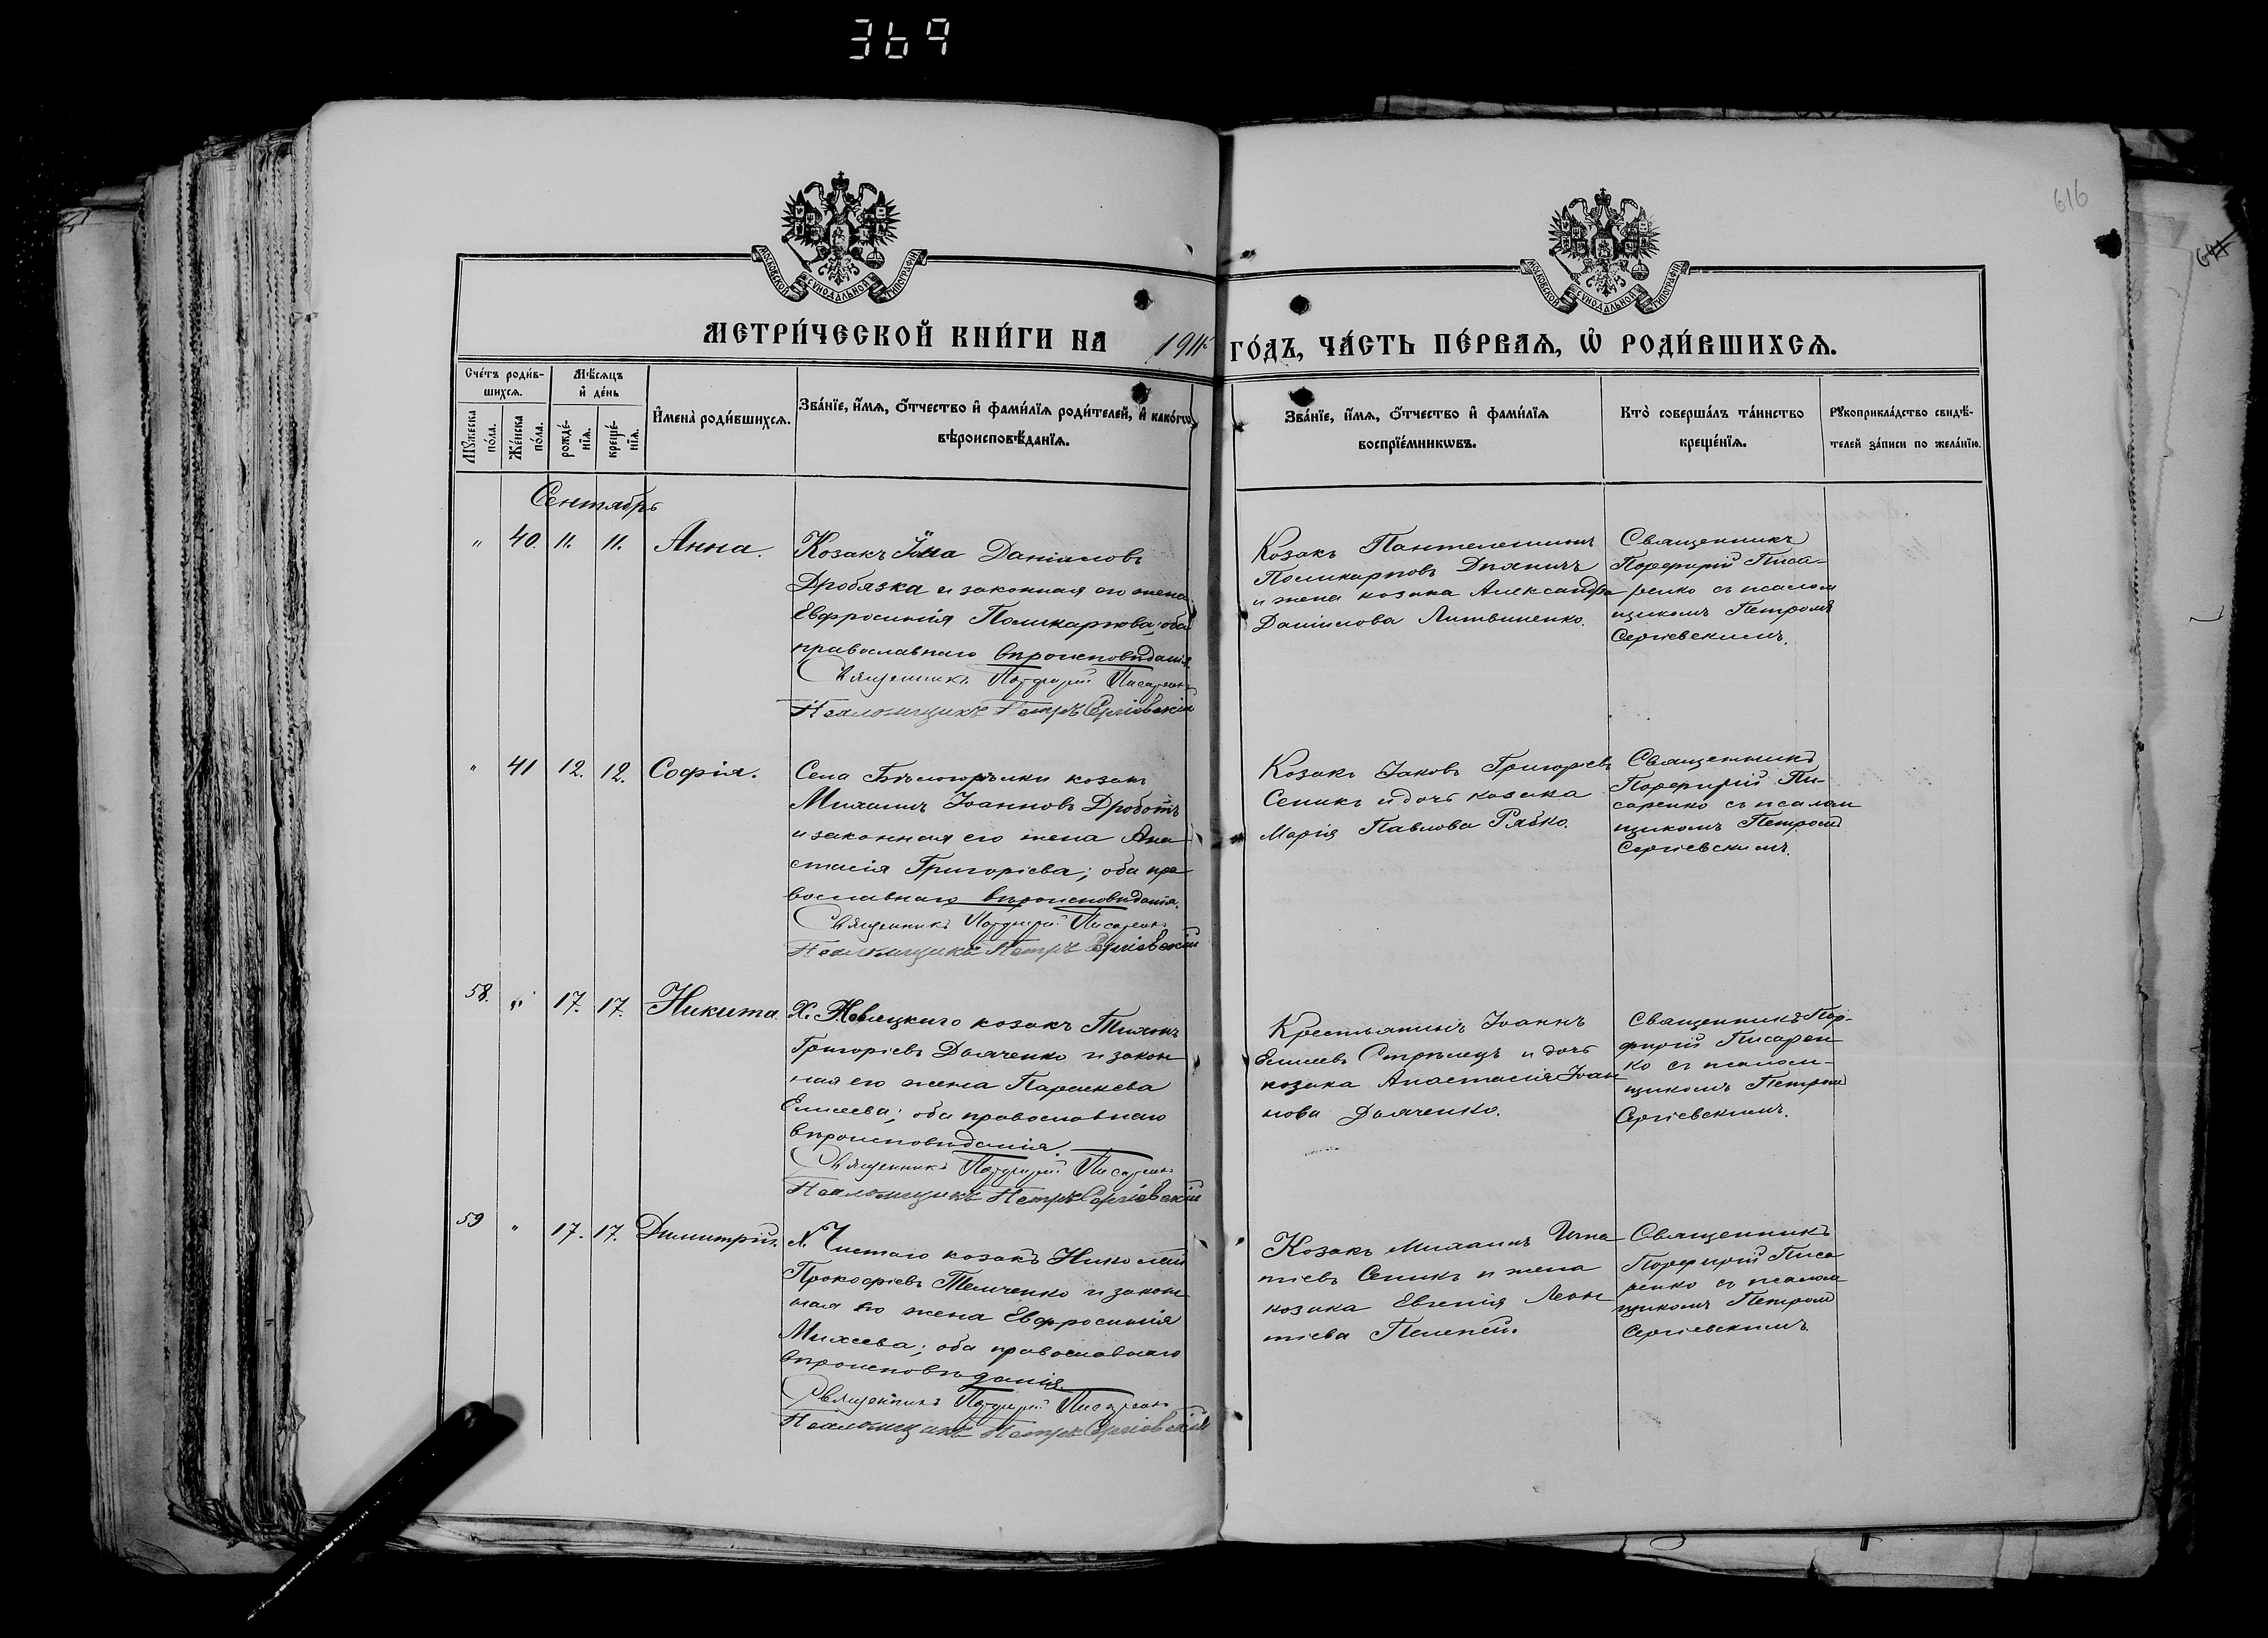 369
616
МОСКОВСКОЙ СѴНОДАЛЬНОЙ ТИПОГРАФІИ
МОСКОВСКОЙ СѴНОДАЛЬНОЙ ТИПОГРАФІИ
МЕТРИ́ЧЕСКОЙ КНИ́ГИ НА
ГО́ДЪ, ЧА́СТЬ ПЕ́РВАЯ, Ѡ҆ РОДИ́ВШИХСЯ.
Сче́тъ роди́в-
шихся.
Мѣ́сяцъ
и҆ де́нь
Мꙋ́жеска
по́ла.
Же́нска
по́ла.
рожде́-
нїя.
креще́-
нїя.
И҆мена̀ роди́вшихся.
Зва́нїе, и҆́мя, ѻ҆́тчество и҆ фами́лїя роди́телей, и҆ како́гѡ
вѣроисповѣ́данїя.
Зва́нїе, и҆́мя, ѻ҆́тчество и҆ фами́лїя
воспрїе́мникѡвъ.
Кто̀ соверша́лъ та́инство
креще́нїя.
Рꙋкоприкла́дство свидѣ́-
телей за́писи по жела́нїю.
Сентябрь
" 40. 11. 11. Анна.
Козакъ Іона Даніиловъ
Дробязка и законная его жена
Евфросинія Поликарпова; оба
православнаго вѣроисповѣданія.
Священникъ Порфирій Писаренко
Псаломщикъ Петръ Сергіевскій
Козакъ Пантелеимонъ
Поликарповъ
и жена козака Александра
Даніилова Литвиненко.
Священникъ
Порфирій Писа-
ренко съ псалом
щикомъ Петромъ
Сергіевскимъ.
" 41 12. 12. Софія.
Села Бѣлогорѣлки козакъ
Михаилъ Іоанновъ Дроботъ
и законная его жена Ана
стасія Григоріева; оба пра
вославнаго вѣроисповѣданія.
Священникъ Порфирій Писаренко
Псаломщикъ Петръ Сергіевскій
Козакъ Іаковъ Григоріевъ
Сепикъ и дочь козака
Марія Павлова Рябко.
Священникъ
Порфирій Пи-
саренко съ псалом
щикомъ Петромъ
Сергіевскимъ.
58. " 17. 17. Никита.
Х. козакъ
Григоріевъ Дьяченко и закон
ная его жена Параскева
Елисеева; оба православнаго
вѣроисповѣданія.
Священникъ Порфирій Писаренко
Псаломщикъ Петръ Сергіевскій
Крестьянинъ Іоаннъ
Елисеевъ Стрѣлецъ и дочь
козака Анастасія Іоан
нова Дьяченко.
Священникъ Пор-
фирій Писарен
ко съ псалом-
щикомъ Петромъ
Сергіевскимъ.
59 " 17. 17. Димитрій.
х. Чистаго козакъ Николай
Прокофіевъ Темченко и закон
ная его жена Евфросинія
Михеева; оба православнаго
вѣроисповѣданія.
Священникъ Порфирій Писаренко
Псаломщикъ Петръ Сергіевскій
Козакъ Михаилъ Игна
тіевъ Сепикъ и жена
козака Евгенія Леон
тіева Пелепей.
Священникъ
Порфирій Писа
ренко съ псалом
щикомъ Петромъ
Сергіевскимъ.